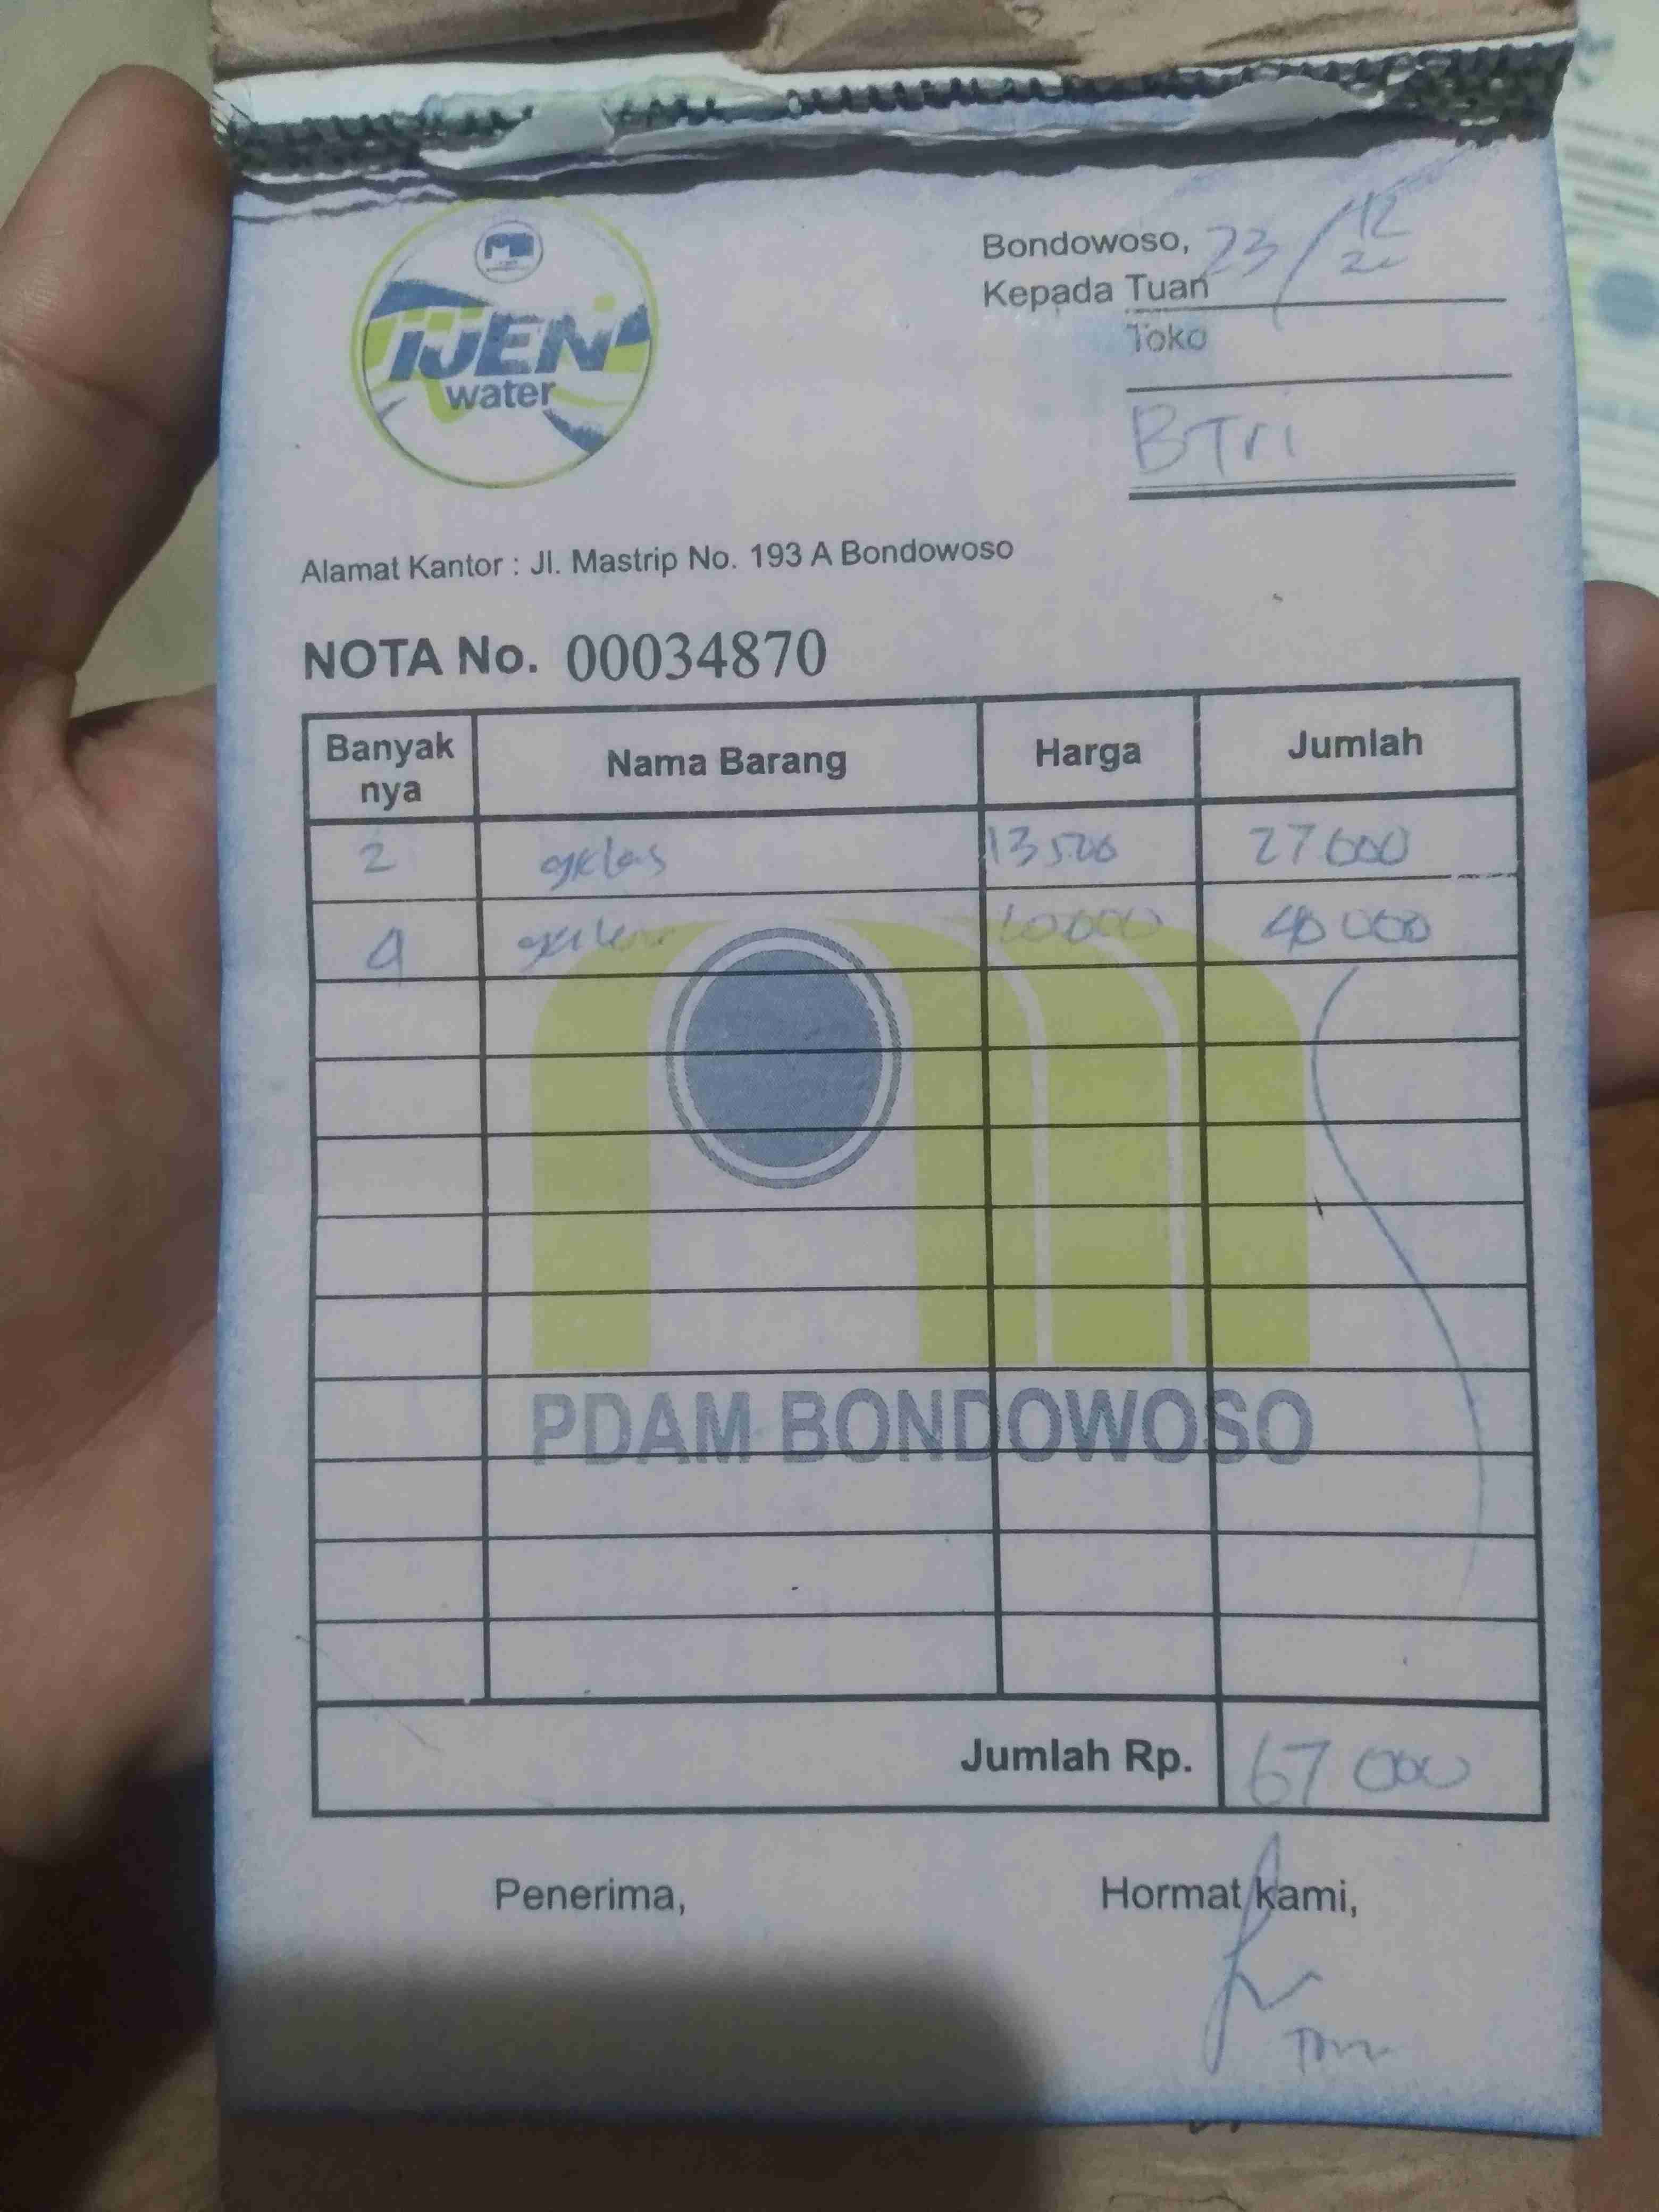 IJEN
water
Bondowoso, 23/12
Kepada Tuan
Toko
BTri
Alamat Kantor : Jl. Mastrip No. 193 A Bondowoso
NOTA No. 00034870
Banyak nya Nama Barang Harga Jumlah
2 gelas 13500 27000
4 10000 40000
PDAM BONDOWOSO
Jumlah Rp. 67 000
Penerima, Hormat kami,